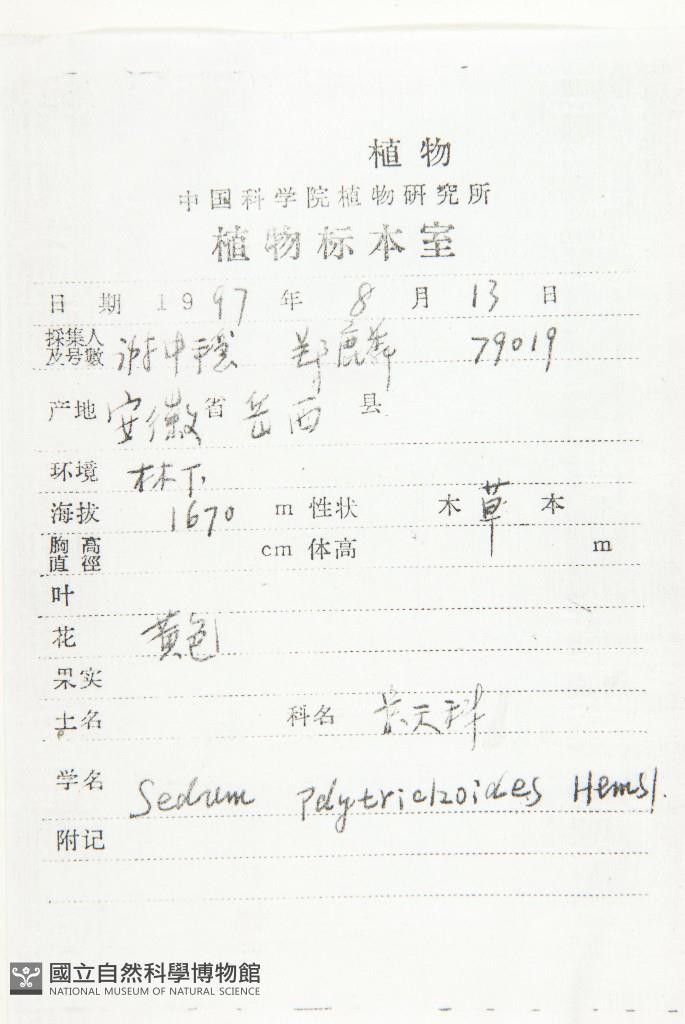 植物
中国科学院植物研究所
植物标本室
日期 1997 年 8 月 13 日
採集人及号數 谢中稳 郑 79019
产地 安徽 省 岳西 县
环境 林下
海拔 1670 m 性状 木 草 本
胸高直徑 cm 体高 m
叶
花 黄色
果实
土名 科名 景天科
学名 Sedum polytrichoides Hemsl.
附记
國立自然科學博物館
NATIONAL MUSEUM OF NATURAL SCIENCE